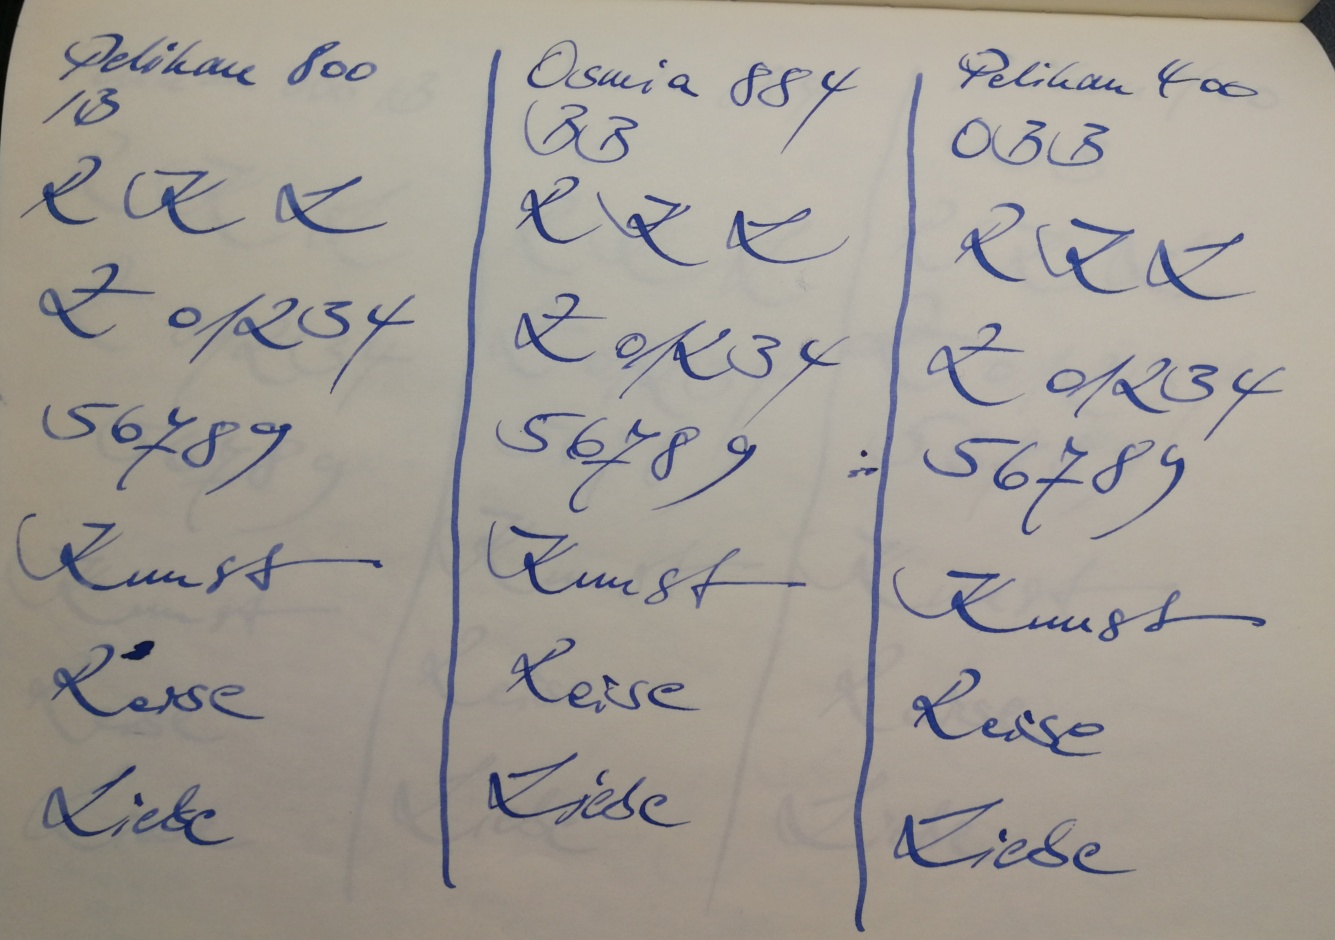 Pelikan 800
B
R K L
Z 01234
56789
Kunst
Reise
Liebe
Osmia 884
BB
R K L
Z 01234
56789
Kunst
Reise
Liebe
Pelikan 400
OBB
R K L
Z 01234
56789
Kunst
Reise
Liebe